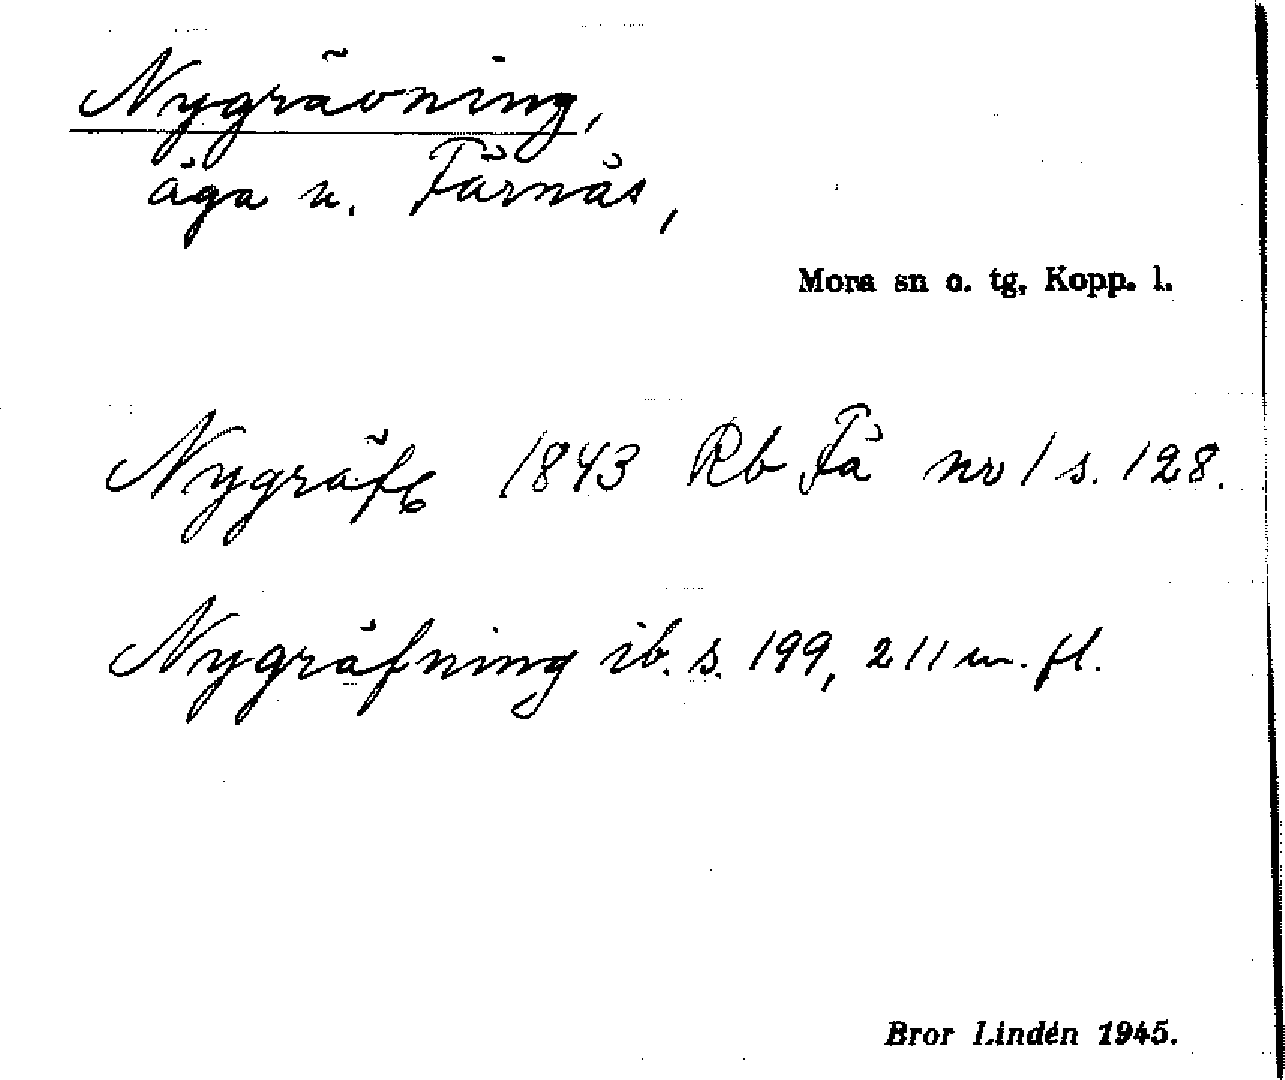 Nygrävning,
äga u. Färnäs,
Mora sn o. tg, Kopp. l.
Nygräfg 1843 Rb Fä nr 1 s. 128.
Nygräfning ib. s. 199, 211 m. fl.
Bror Lindén 1945.